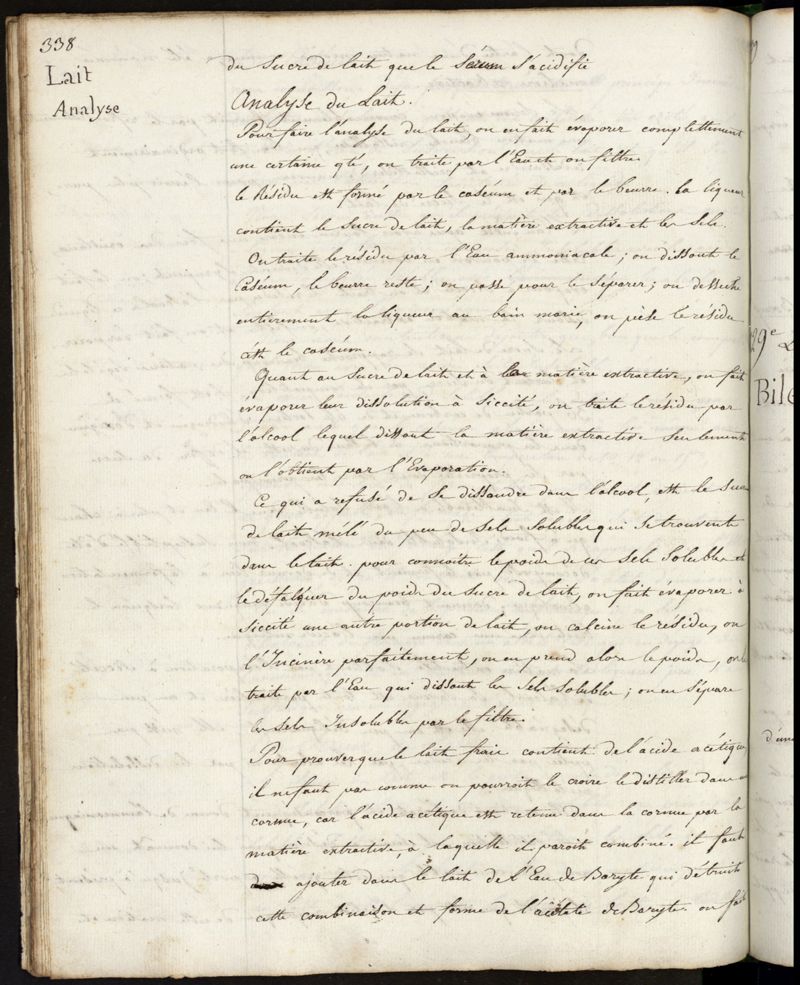 338
Lait
Analyse
du Sucre de lait que le Sérum s'acidifie
Analyse du Lait.
Pour faire l'analyse du lait, on en fait évaporer complettement
une certaine qté, on traite par l'Eau et on filtre
le Résidu est formé par le caséum et par le beurre. la liqueur
contient le Sucre de lait, la matière extractive et les Sels.
On traite le résidu par l'Eau ammoniacale ; on dissout le
Caséum, le beurre reste ; on passe pour le Séparer ; on desseche
entièrement la liqueur au bain marie, on pèse le résidu
c'est le caséum.
Quant au Sucre de lait et à la matière extractive, on fait
évaporer leur dissolution à Siccité, on traite le résidu par
l'alcool lequel dissout la matière extractive Seulement
on l'obtient par l'Evaporation.
Ce qui a refusé de Se dissoudre dans l'alcool, est le Sucre
de lait mêlé du peu de Sels Solubles qui Se trouvent
dans le lait. pour connoitre le poids de ces Sels Solubles et
le défalquer du poids du Sucre de lait, on fait évaporer à
Siccité une autre portion de lait, on calcine le résidu, on
l'Incinère parfaitement, on en prend alors le poids, on le
traite par l'Eau qui dissout les Sels Solubles ; on en Sépare
les sels Insolubles par le filtre.
Pour prouver que le lait frais contient de l'acide acétique
il ne faut pas comme on pourroit le croire le distiller dans une
cornue, car l'acide acétique est retenu dans la cornue par la
matière extractive, à laquelle il paroit combiné. il faut
ajouter dans le lait de l'Eau de Baryte qui détruit
cette combinaison et forme de l'acétate de Baryte. on fait
29e
Bile
d'une